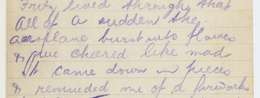 lived through that
All of a sudden the
aeroplane burst into flames
& we cheered like mad
it came down in pieces
& reminded me of a firework